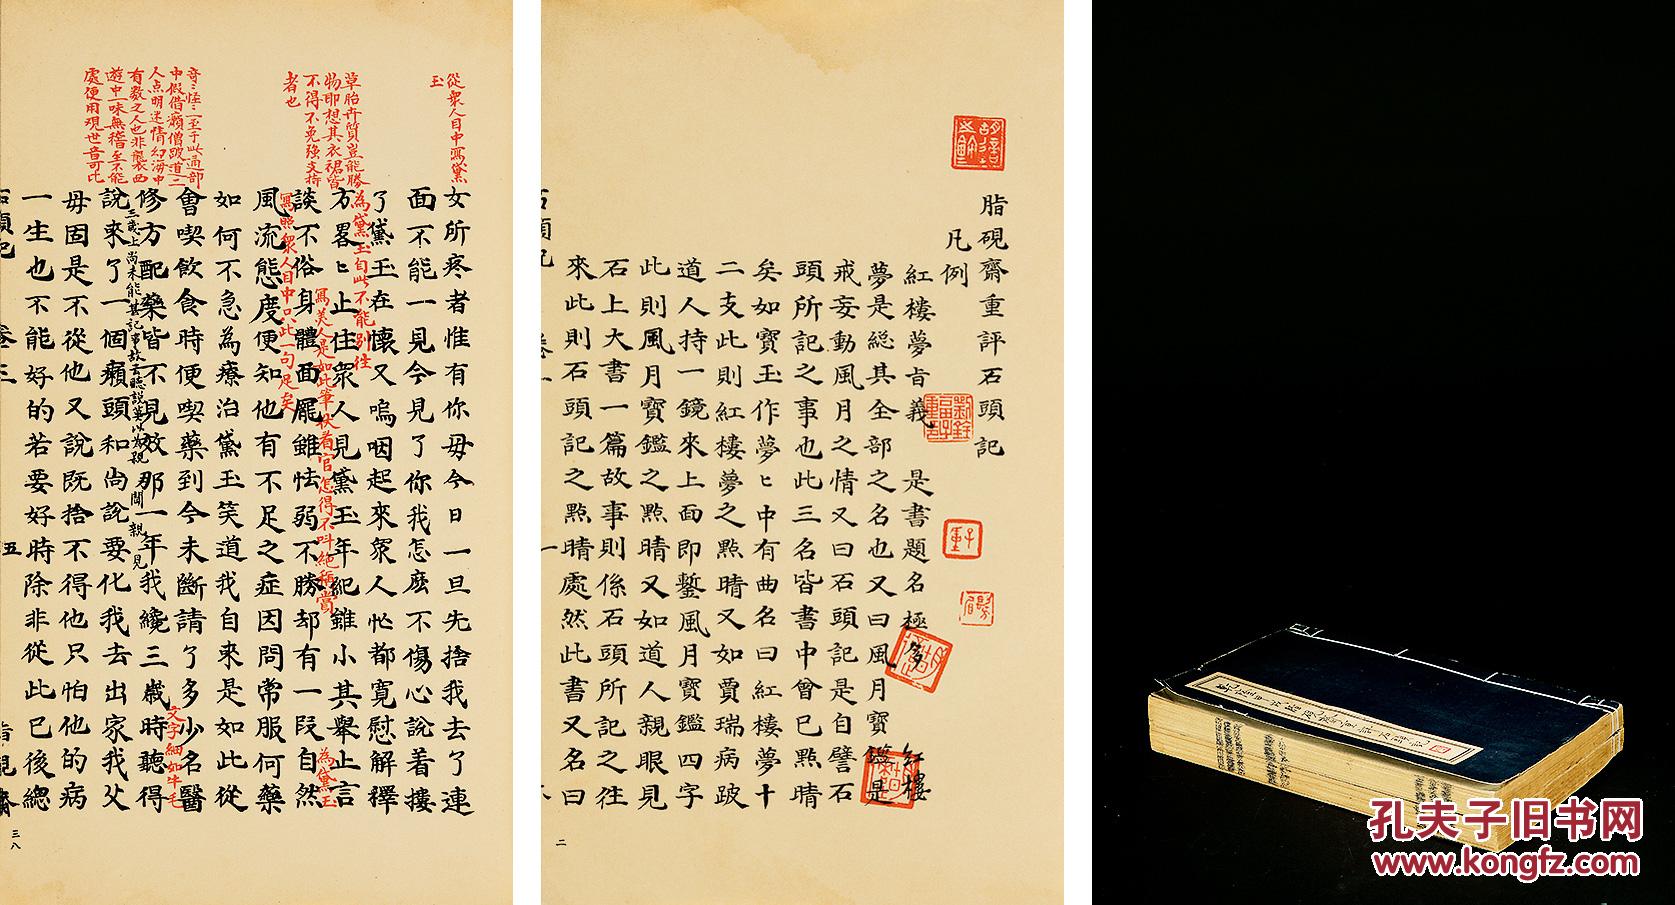 從衆人目中寫黛
玉
草胎卉質豈能勝
物耶想其衣裙皆
不得不免強支持
者也
奇〻怪〻一至于此通部
中假借癩僧跛道二
人点明迷情幻海中
有数之人也非襲西
遊中一味無稽至不能
處便用觀世音可比
女所疼者惟有你母今日一旦先捨我去了連
面不能一見今見了你我怎麼不傷心說着摟
了黛玉在懷又嗚咽起來衆人忙都寬慰解釋
為黛玉自此不能別往
方畧〻止住衆人見黛玉年紀雖小其舉止言
寫美人是如此筆仗看官怎得不叫絕稱賞
為黛玉
談不俗身體面龎雖怯弱不勝却有一段自然
寫照衆人目中只此一句足矣
風流態度便知他有不足之症因問常服何藥
如何不急為療治黛玉笑道我自來是如此從
會喫飲食時便喫藥到今未斷請了多少名醫
文字細如牛毛
修方配藥皆不見效那一年我纔三歲時聽得
三歲上尚未能甚記事故云聽說莫以為親聞親見
說來了一個癩頭和尚說要化我去出家我父
母固是不從他又說既捨不得他只怕他的病
一生也不能好的若要好時除非從此已後總
石頭記
卷三
五
脂硯齋
三八
脂硯齋重評石頭記
凡例
紅樓夢旨義 是書題名極多 紅樓
夢是総其全部之名也又曰風月寶鑑是
戒妄動風月之情又曰石頭記是自譬石
頭所記之事也此三名皆書中曾已點睛
矣如寶玉作夢〻中有曲名曰紅樓夢十
二支此則紅樓夢之點睛又如賈瑞病跛
道人持一鏡來上面即鏨風月寶鑑四字
此則風月寶鑑之點睛又如道人親眼見
石上大書一篇故事則係石頭所記之往
來此則石頭記之點睛處然此書又名曰
石頭記
卷一
一
二
孔夫子旧书网
www.kongfz.com